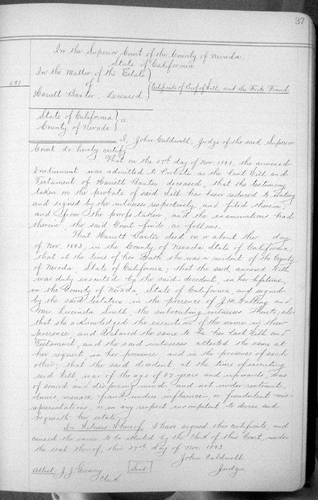 37
In the Superior Court of the County of Nevada
State of California
In the Matter of the Estate
of
Harriett Baxter, Deceased
Certificate of Proof of Will, and the Facts Found
State of California
County of Nevada
ss
I, John Caldwell, Judge of the said Superior
Court do hereby certify
That on the day of Nov. 1893, the annexed
Instrument was admitted to Probate as the Last Will and
Testament of Harriett Baxter deceased, that the testimony
taken on the probate of said Will has been reduced to writing
and signed by the witnesses respectively, and filed therein,
and from the proofs taken and the examinations had
therein, the said Court finds as follows.
That Harriett Baxter died on or about the day
of Nov. 1893, in the County of Nevada State of California,
that at the time of her Death she was a resident of the County
of Nevada State of California; that the said annexed Will
was duly executed by the said decedent, in her lifetime,
in the County of Nevada, State of California and signed
by the said testatrix in the presence of J. M.
Mrs Lucinda Smith, the subscribing witnesses thereto, also
that she acknowledged the execution of the same in their
presence and declared the same to be her Last Will and
Testament, and the said witnesses attested the same at
her request, in her presence and in the presence of each
other, that the said decedent at the time of executing
said Will, was of the age of years and upwards, was
of sound and disposing mind, and not under restraint,
duress, menace, fraud, undue influence, or fraudulent mis-
representations, or in any respect incompetent to devise and
bequeath her estate.
In Witness Whereof, I have signed this certificate, and
caused the same to be attested by the Clerk of this Court, under
the seal thereof, this day of Nov. 1893.
John Caldwell
Judge
Attest, J. J.
Clerk
Seal